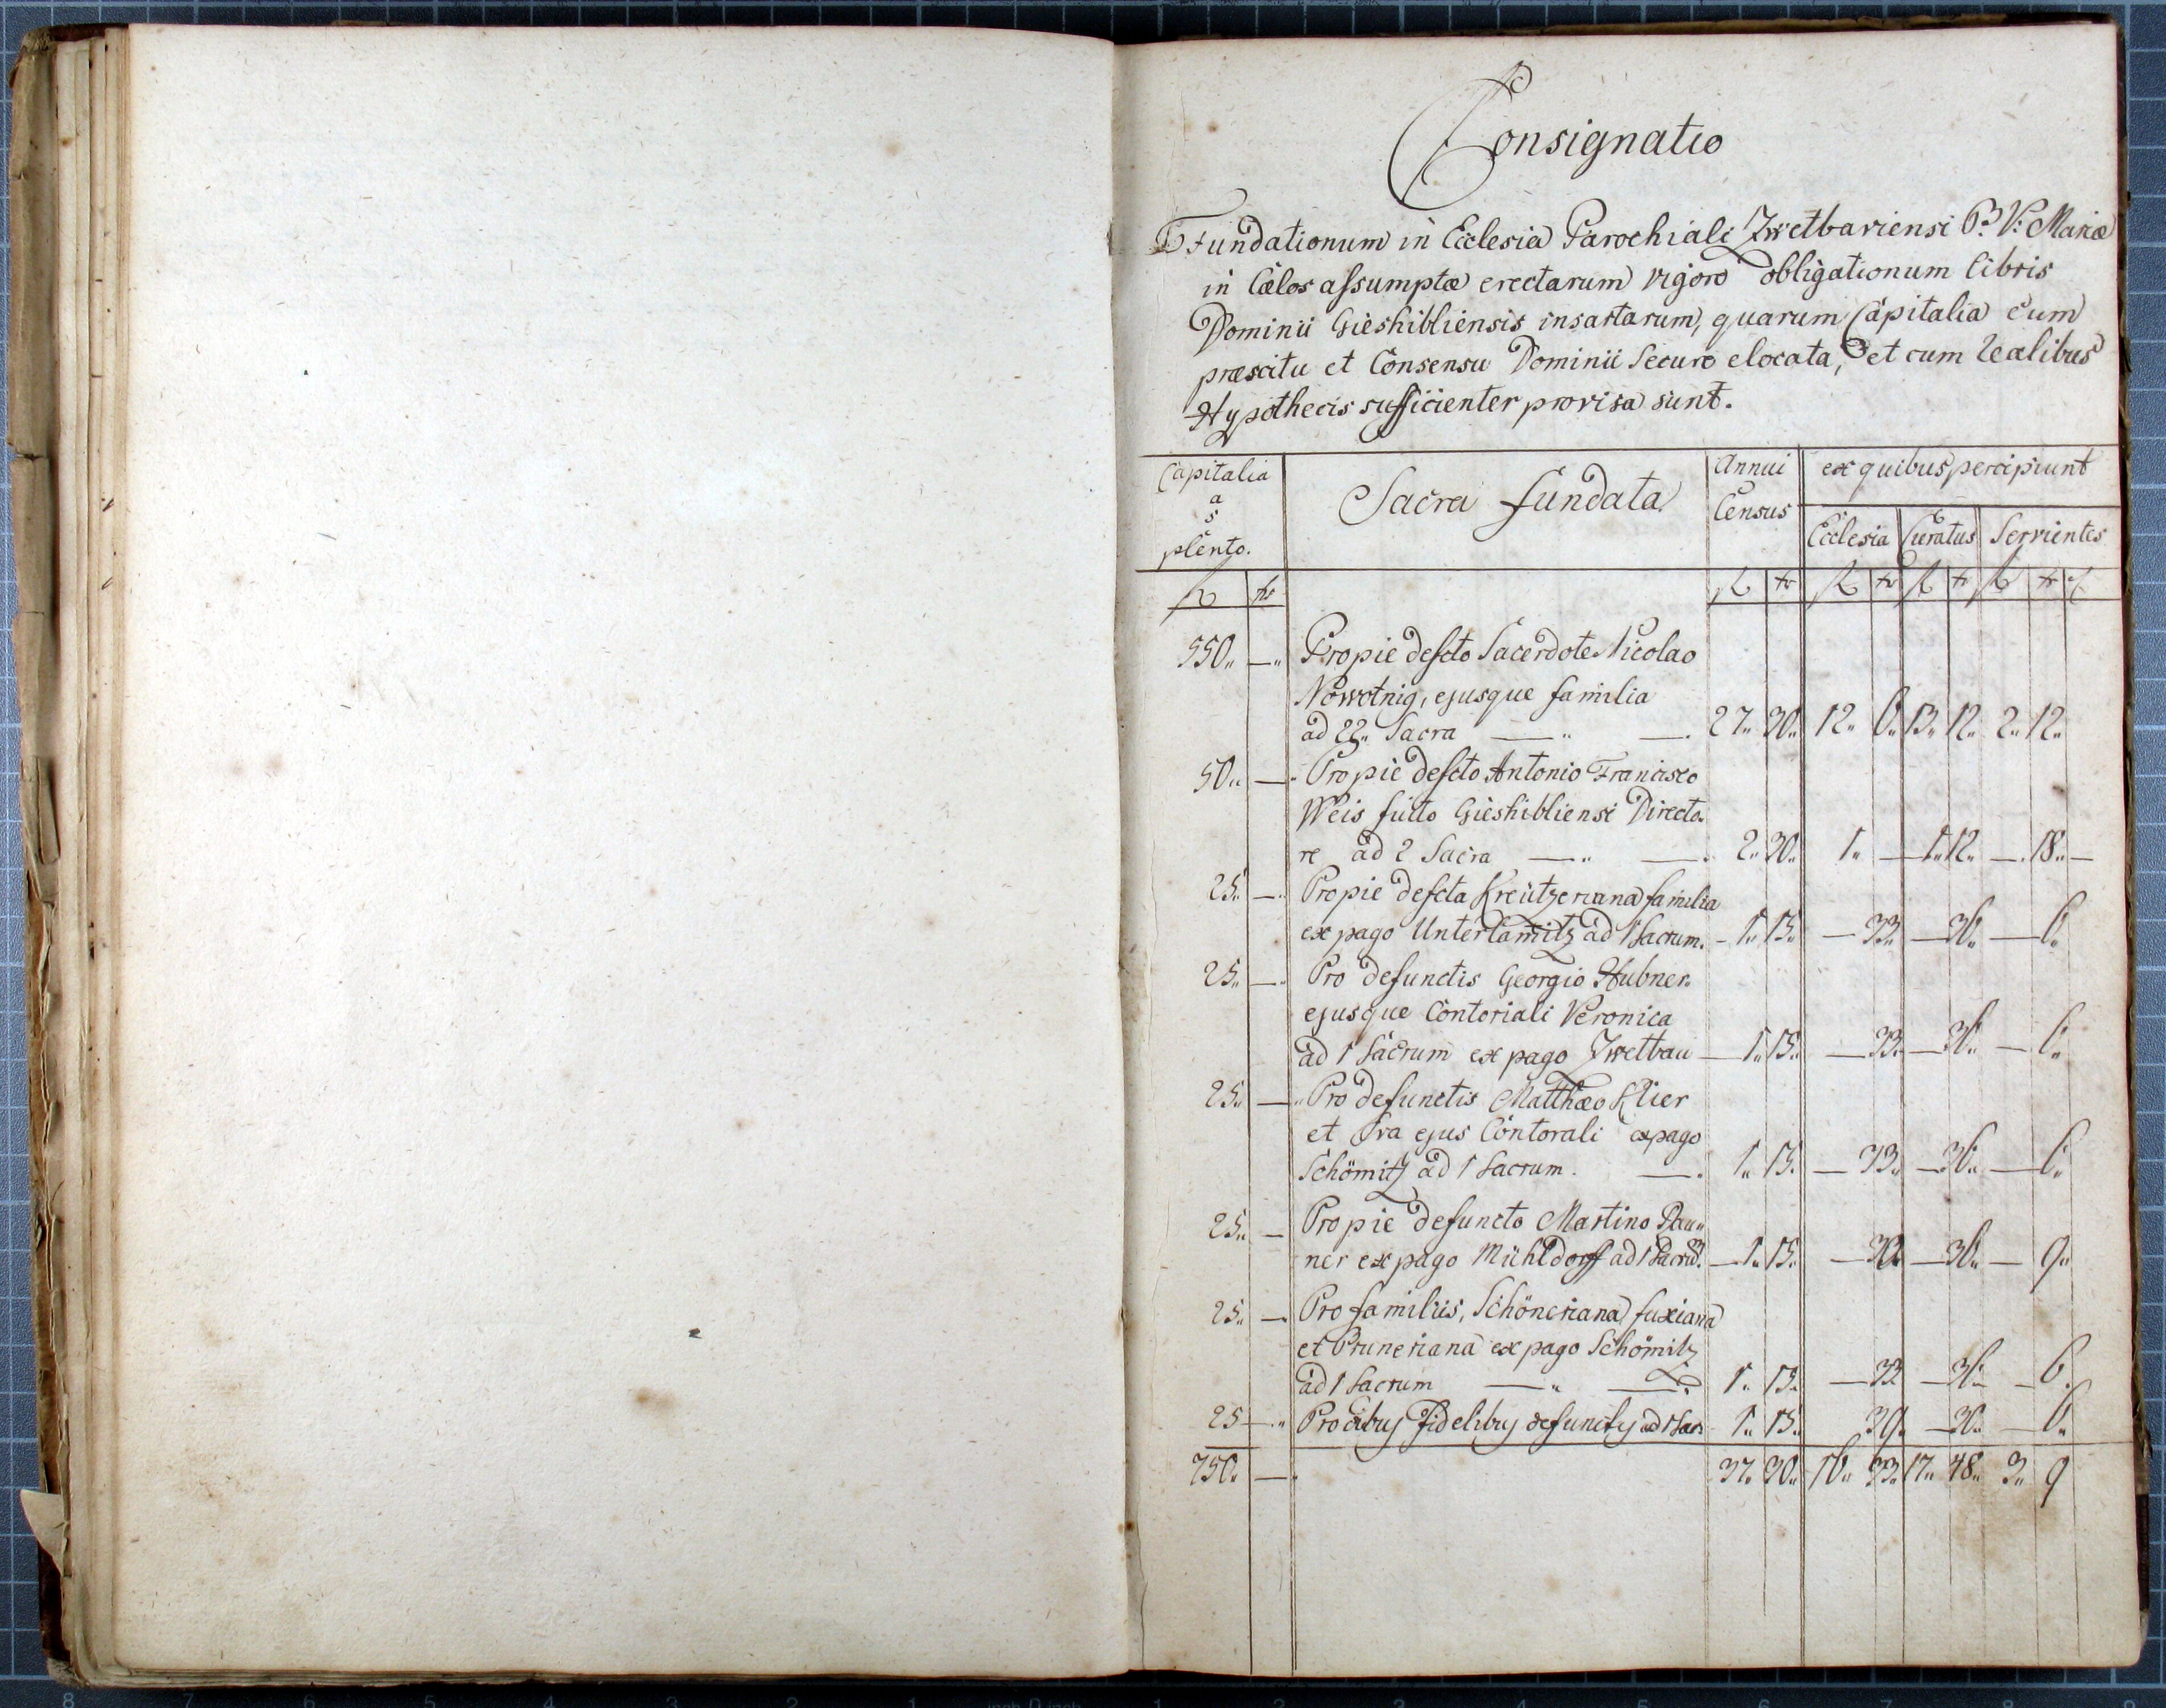 Consignatio
Fundationum in Ecclesia Parochiali Zwetbariensi B. V. Mariæ
in Cælos assumptæ erectarum vigore obligationum libris
Dominii Gieshibliensis insartarum, quarum Capitalia cum
præscitu et Consensu Dominii Secure elocata, et cum Realibus
Hypothecis sufficienter provisa sunt.
Capitalia a 5 pCento. Sacra fundata Annui Census ex quibus percipiunt
Ecclesia Curatus Servientes
f xr f xr f xr f xr f xr
550„ —„ Pro pie defcto Sacerdote Nicolao
Nowotnig, ejusque familia
ad 22„ Sacra —„ —. 27„ 30„ 12„ 6„ 13„ 12„ 2„ 12„
50„ —. Pro pie defcto Antonio Francisco
Weis fuito Gieshibliensi Directo-
re ad 2 Sacra —„ —. 2„ 30„ 1„ — 1„ 12„ —. 18„ —
25„ —. Pro pie defcta Kreützeriana familia
ex pago Unterlamitz ad 1 Sacrum. - 1„ 15„ — 33„ — 36„ — 6„
25„ —. Pro defunctis Georgio Hubner
ejusque Contoriali Veronica
ad 1 Sacrum ex pago Zwetbau — 1„ 15„ — 33„ — 36„ — 6„
25„ —„ Pro defunctis Matthæo Klier
et ejus Contorali ex pago
Schömitz ad 1 Sacrum. —. 1„ 15„ — 33„ — 36„ — 6„
25„ — Pro pie defuncto Martino Pau„
ner ex pago Mühldorff ad 1 Sacrū. — 1„ 15„ — — 36„ — 9„
25„ —. Pro familiis, Schöneriana, fuxiana
et Pruneriana ex pago Schömitz
ad 1 Sacrum —„ —„ 1„ 15„ — 33 — 36 — 6„
25 —.„ Pro oibus Fidelibus defunctis ad 1 Sac: 1„ 15„ — 36„ — 6„
750„ —. 37„ 30„ 16„ 33„ 17„ 48„ 3„ 9